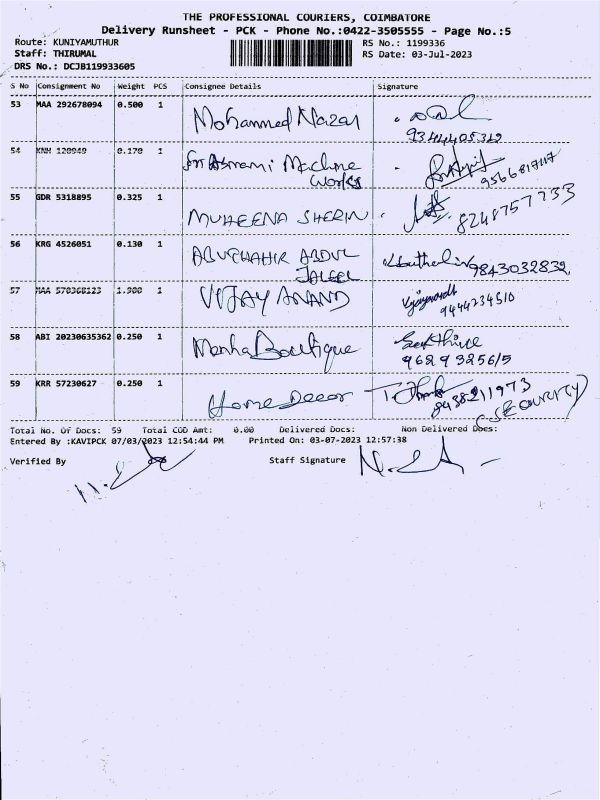 THE PROFESSIONAL COURIERS, COIMBATORE
Delivery Runsheet - PCK - Phone No.:0422-3505555 - Page No.:5
Route: KUNIYAMUTHUR RS No.: 1199336
Staff: THIRUMAL RS Date: 03-Jul-2023
DRS No.: DCJB119933605
S No Consignment No Weight PCS Consignee Details Signature
53 MAA 292678094 0.500 1 Mohammed Nazar
9344405342
54 KNH 120949 0.170 1 Sri Asmami Machine
Works 9566817117
55 GDR 5318895 0.325 1 MUHEENA SHERIN 8248757233
56 KRG 4526051 0.130 1 ABUTHAHIR ABDUL
JALEEL 9843032832
57 MAA 570368123 1.900 1 VIJAY ANAND
9444234510
58 ABI 20230635362 0.250 1 Menha Boutique
9629325615
59 KRR 57230627 0.250 1 Home Decor
9438211973
(SECURITY)
Total No. Of Docs: 59 Total COD Amt: 0.00 Delivered Docs: Non Delivered Docs:
Entered By :KAVIPCK 07/03/2023 12:54:44 PM Printed On: 03-07-2023 12:57:38
Verified By Staff Signature